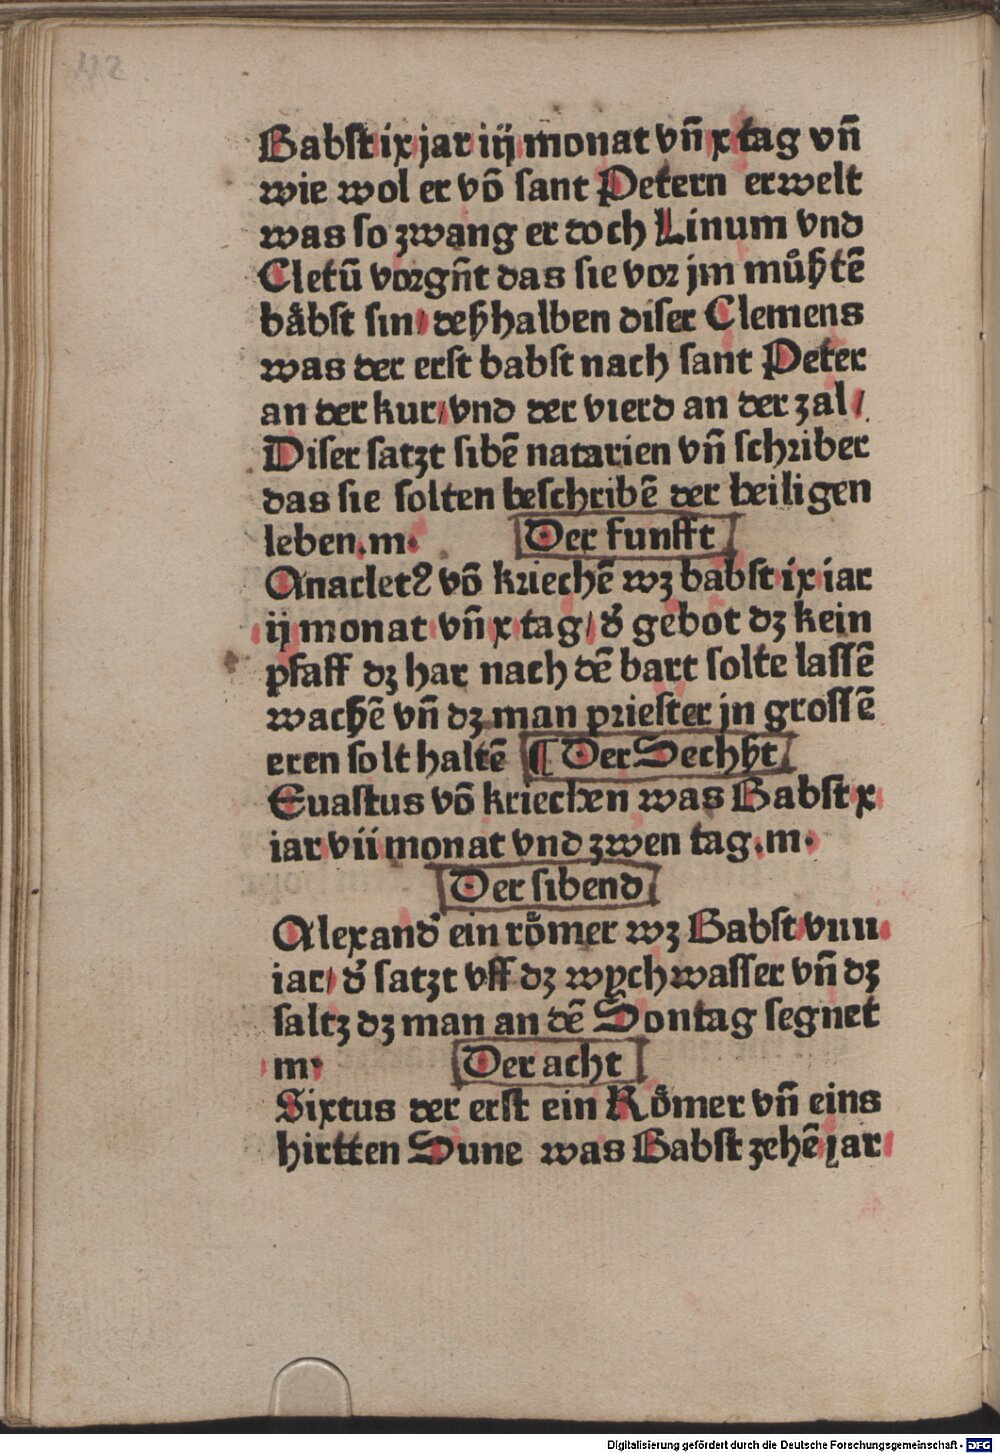 42
Babst ix jar iij monat vn̄ x tag vn̄
wie wol er vō sant Petern erwelt
was so zwang er doch Linum vnd
Cletū vorgn̄t das sie vor jm můßtē
bâbst sin/ deßhalben diser Clemens
was der erst babst nach sant Peter
an der kur/ vnd der vierd an der zal/
Diser satzt sibē natarien vn̄ schriber
das sie solten beschribē der heiligen
leben.m. Der funfft
Anacletꝰ vō kriechē wz babst ix iar
ij monat vn̄ x tag/ d̄ gebot dz kein
pfaff dz har nach dē bart solte lassē
wachē vn̄ dz man priester jn grossē
eren solt haltē ¶ Der Sechßt
Euastus vō kriechen was Babst x
iar vii monat vnd zwen tag.m.
Der sibend
Alexand̄ ein rőmer wz Babst viiii
iar/ d̄ satzt vff dz wychwasser vn̄ dz
saltz dz man an dē Sontag segnet
m. Der acht
Sixtus der erst ein Rőmer vn̄ eins
hirtten Sune was Babst zehē jar/
Digitalisierung gefördert durch die Deutsche Forschungsgemeinschaft - DFG